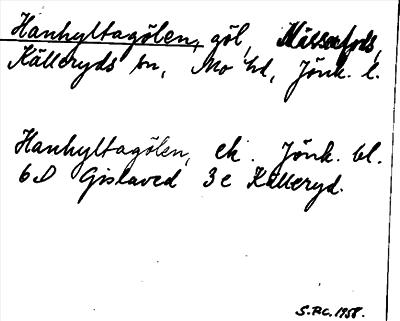 Hanhyltagölen, göl,
Källeryds sn, Mo hd, Jönk. l.
Hanhyltagölen, ek. Jönk. bl.
6d Gislaved 3c Källeryd.
S.P.C. 1958.